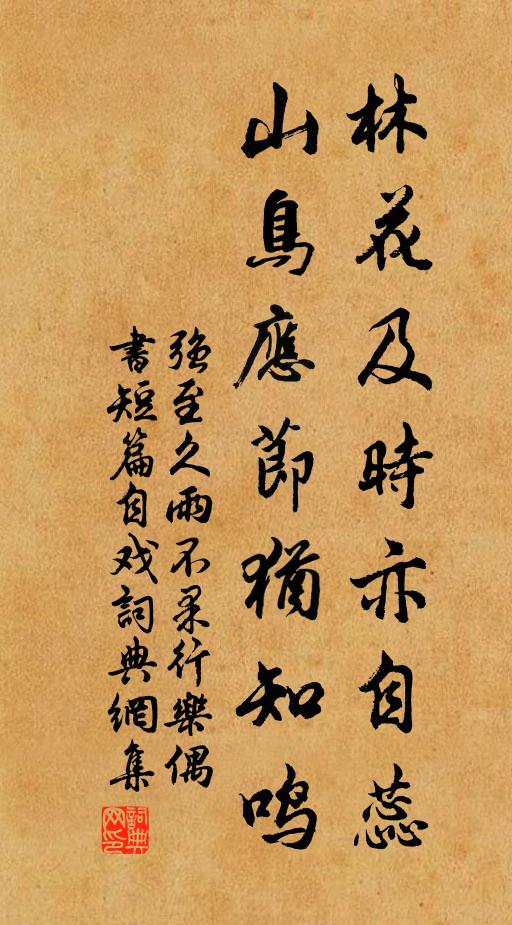 林花及時亦自蕊
山鳥應節猶知鸣
強至久雨不果行樂偶
書短篇自戏詞典網集
詞典网印